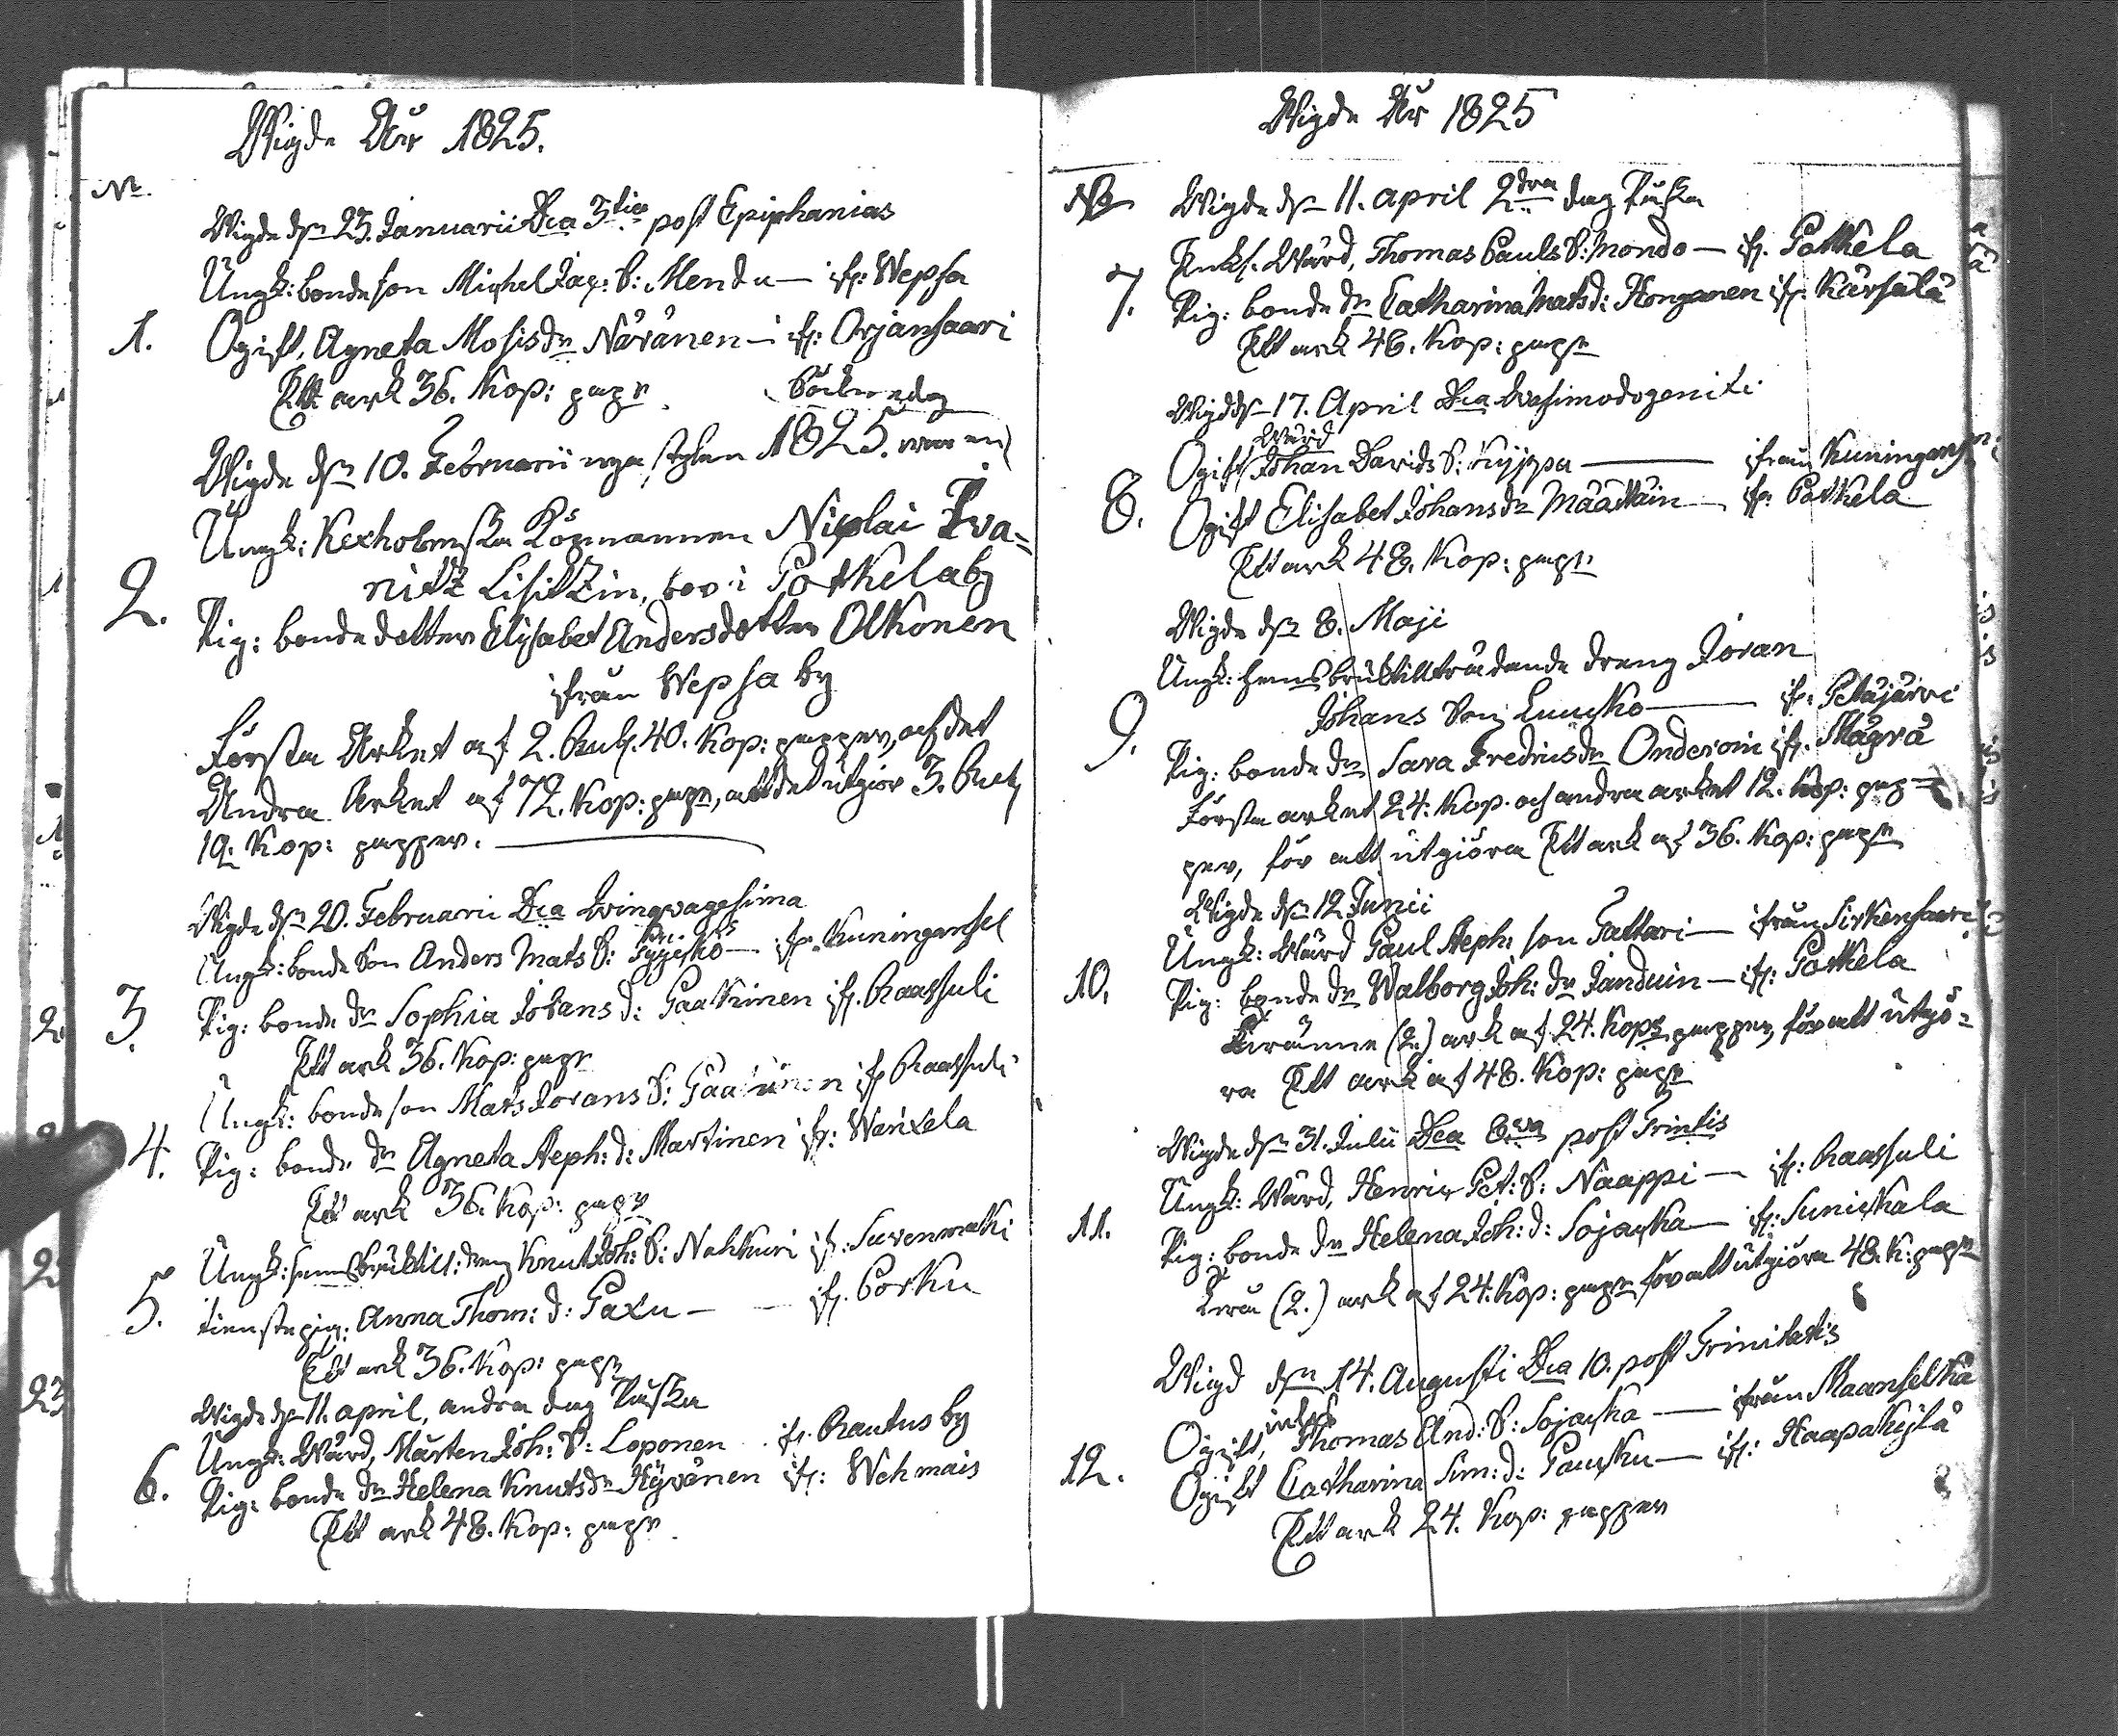 Wigde År 1825.
No.
Wigde dn 25. Januarii Dca 3tia post Epiphanias
Ungk: bonde son Michel Jac: S: Mendu — ifr: Wepsa
1. Ogift, Agneta Mosis dr Näränen — ifr: Orjansaari
Ett ark 36. Kop: papr
Wigde dn 10. Februarii nya stylen 1825. war en Söcknedag
Ungk: Kexholmska Köpmannen Nicolai Iva=
2. nitz Lisitzin, bor i Potkela by
Pig: bonde dotter Elisabet Andersdotter Olkonen
ifrån Wepsa by
Första Arket af 2. Rub. 40. Kop: papper, och det
Andra Arket af 72. Kop: papr, att det utgiör 3. Rub
12. Kop: papper.
Wigde dn 20. Februarii Dca Qvinqvagesima
Ungk: bonde Son Anders Mats S: — ifr. Kuningansel
3. Pig: bonde dr Sophia Johans d: Paakinen ifr. Raassuli
Ett ark 36. Kop: papr
Ungk: bonde son Mats Jörans S: Paakinen ifr Raassuli
4. Pig: bonde dr Agneta Steph: d: Martinen ifr: Wenxela
Ett ark 36. Kop: papr
Ungk: hemsbruktill: dreng Knut Joh: S: Nahkuri ifr: Suvenmäki
5. tienstepig: Anna Thom: d: Paxu — — ifr. Porku
Ett ark 36. Kop: papr
Wigde dn 11. april, andra dag Påska
Ungk: Wärd, Mårten Joh: S: Loponen ifr. Rautus by
6. Pig: bonde dr Helena Knuts dr Hyvönen ifr: Wehmais
Ett ark 48. Kop: papr.
Wigde År 1825
No Wigde dn 11. april 2dra dag Påska
Enkl. Wärd, Thomas Pauls S: Mondo — ifr. Potkela
7. Pig: bonde dr Catharina Mats d: Honganen ifr. Kärsälä
Ett ark 48. Kop: papr
Wigd dn 17. April Dca Qvasimodogeniti
Wärd
Ogift Johan Davids S: Kyppa — ifrån Kuningans
8. Ogift Elisabet Johans dr Määttäin — ifr: Potkela
Ett ark 48. Kop: papr
Wigde dn 8. Maji
Ungk: hemsbruktillträdande dreng Jöran
9. Johans Son Luucko — ifr: Petäjärvi
Pig: bonde dr Sara Fredrics dr Onderoin ifr. Mägrä
Första arket 24. Kop. och andra arket 12. Kop: pap=
per, för att utgiöra Ett ark af 36. Kop: papr
Wigde dn 12 Junii
Ungk: Wärd Paul Steph: son Tattari — ifrån Sirkensaari
10. Pig: bonde dr Walborg Joh: dr Janduin — ifr: Potkela
Tvänne (2.) ark af 24. Kops papper, för att utgö=
ra Ett ark af 48. Kop: papr
Wigde dn 31. Julii Dca 8va post Trinitis
Ungk: Wärd, Henric Pet: S: Naappi — ifr: Raassuli
11. Pig: bonde dr Helena Joh: d: Sojacka — ifr: Sunickala
Tva (2.) ark af 24. Kop: papr för att utgiöra 48. K: papr
Wigd dn 14. Augusti Dca 10. post Trinitatis
Ogift, Thomas And: S: Sojacka — ifrån Maanselkä
12. Ogift Catharina Sim: d: Paucku — ifr: Haapakylä
Ett ark 24. Kop: papper